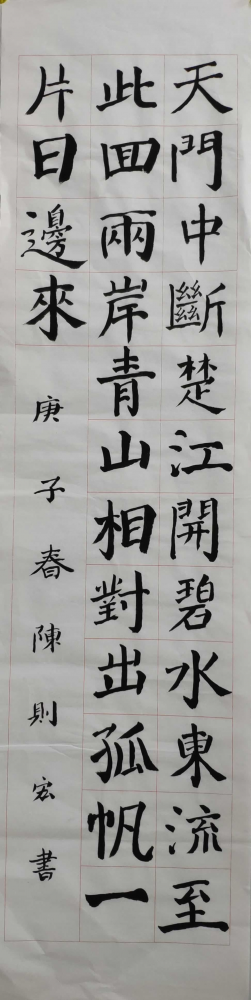 天門中斷楚江開碧水東流至
此回兩岸青山相對出孤帆一
片日邊來
庚子春陳則宏書